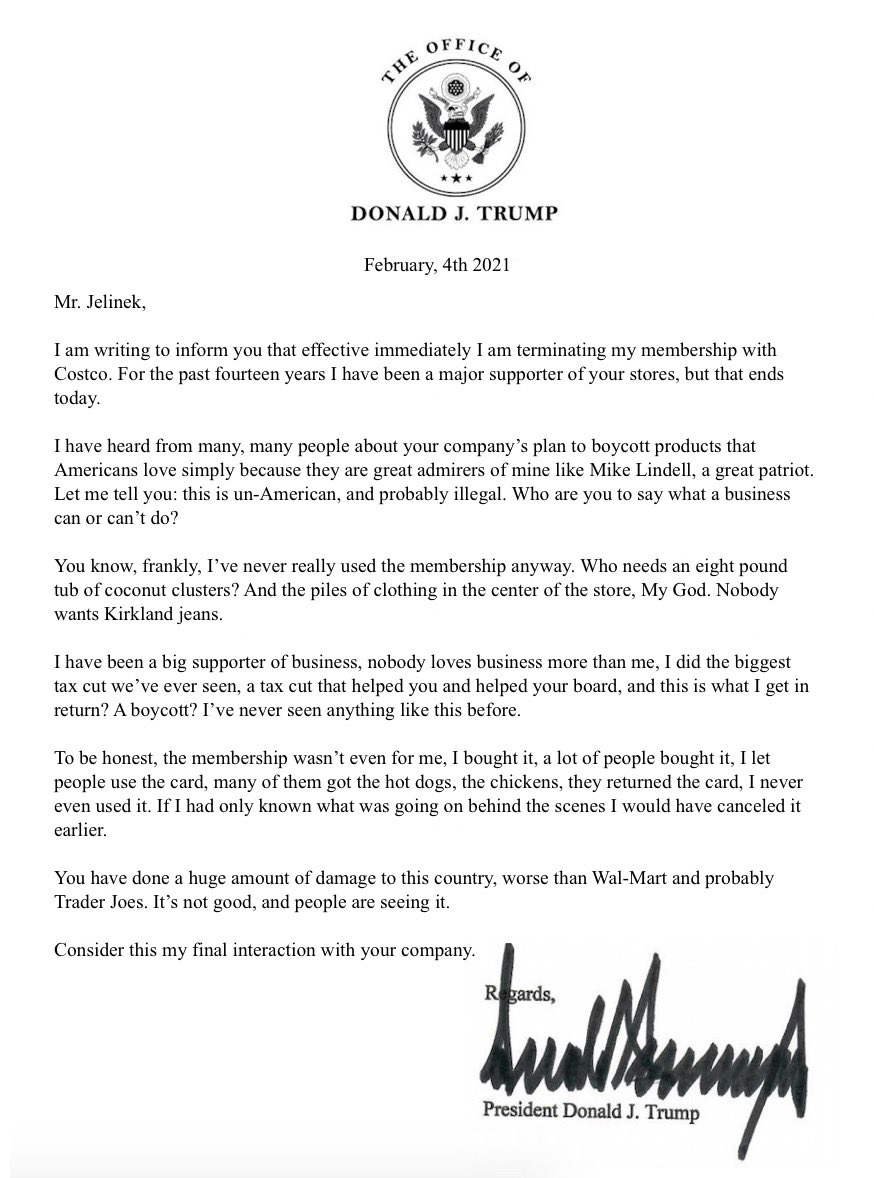 THE OFFICE OF
DONALD J. TRUMP
February, 4th 2021
Mr. Jelinek,
I am writing to inform you that effective immediately I am terminating my membership with
Costco. For the past fourteen years I have been a major supporter of your stores, but that ends
today.
I have heard from many, many people about your company’s plan to boycott products that
Americans love simply because they are great admirers of mine like Mike Lindell, a great patriot.
Let me tell you: this is un-American, and probably illegal. Who are you to say what a business
can or can’t do?
You know, frankly, I’ve never really used the membership anyway. Who needs an eight pound
tub of coconut clusters? And the piles of clothing in the center of the store, My God. Nobody
wants Kirkland jeans.
I have been a big supporter of business, nobody loves business more than me, I did the biggest
tax cut we’ve ever seen, a tax cut that helped you and helped your board, and this is what I get in
return? A boycott? I’ve never seen anything like this before.
To be honest, the membership wasn’t even for me, I bought it, a lot of people bought it, I let
people use the card, many of them got the hot dogs, the chickens, they returned the card, I never
even used it. If I had only known what was going on behind the scenes I would have canceled it
earlier.
You have done a huge amount of damage to this country, worse than Wal-Mart and probably
Trader Joes. It’s not good, and people are seeing it.
Consider this my final interaction with your company.
Regards,
President Donald J. Trump